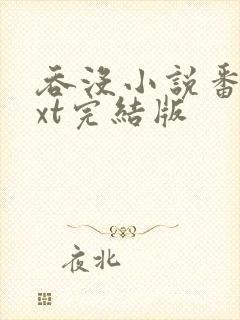 吞没小説番
xt完結版
夜北